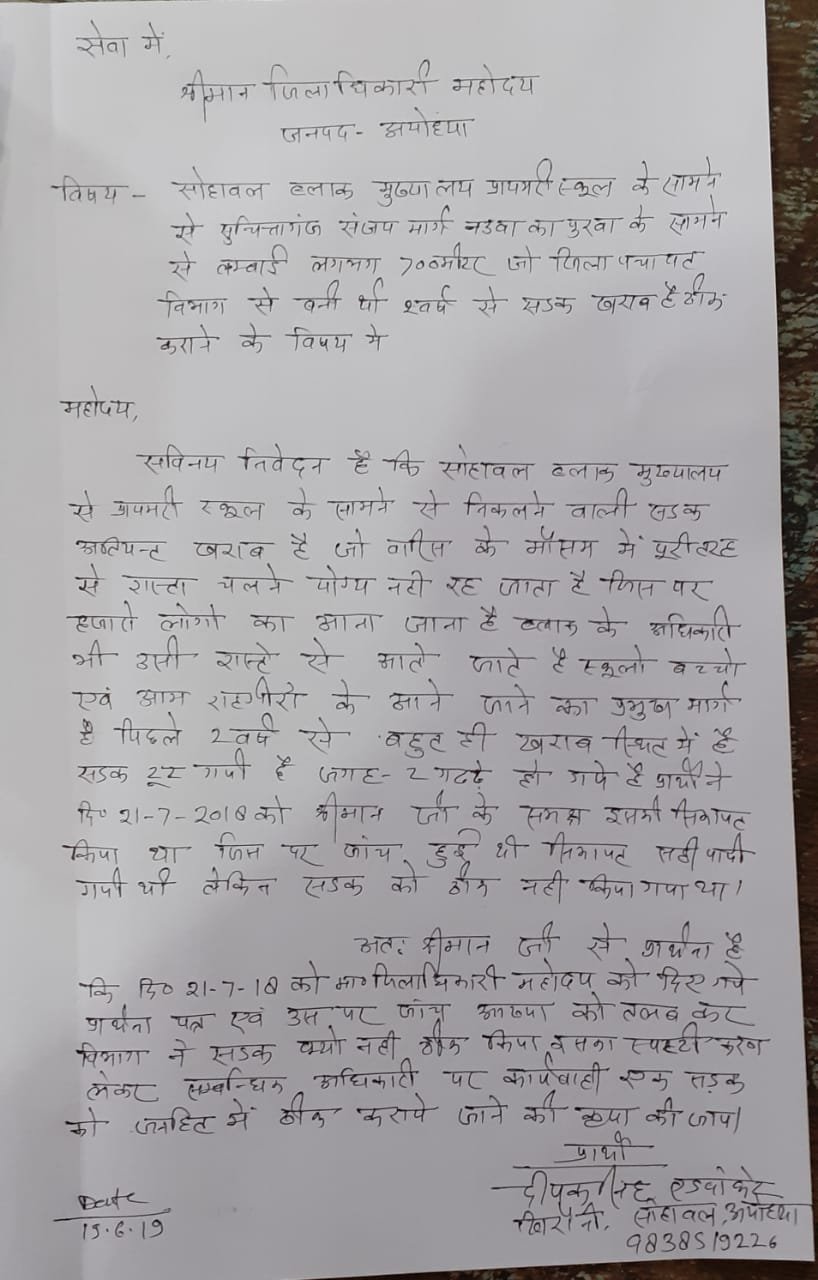 सेवा में,
श्रीमान जिलाधिकारी महोदय
जनपद - अयोध्या
विषय - सोहावल ब्लाक मुख्यालय प्राथमरी स्कूल के सामने
से सुचित्तागंज संजय मार्ग नउवा का पुरवा के सामने
से लम्बाई लगभग 700मीटर जो जिला पंचायत
विभाग से बनी थी २वर्ष से सडक खराब है ठीक
कराने के विषय मे
महोदय,
सविनय निवेदन है कि सोहावल ब्लाक मुख्यालय
से प्रायमरी स्कूल के सामने से निकलने वाली सडक
अत्यिन्त खराब है जो वारिस के मौसम में पूरी तरह
से रास्ता चलने योग्य नही रह जाता है जिस पर
हजारो लोगो का आना जाना है ब्लाक के अधिकारी
भी उसी रास्ते से आते जाते है स्कूलो बच्चो
एवं आम राहगीरो के आने जाने का प्रमुख मार्ग
है पिछले 2वर्ष से बहुत ही खराब स्थित में है
सडक टूट गयी है जगह-2 गढढे हो गये है प्रार्थी ने
दि० 21-7-2018 को श्रीमान जी के समक्ष इसकी सिकायत
किया था जिस पर जांच हुई थी सिकायत सही पायी
गयी थी लेकिन सडक को ठीक नही किया गया था।
अतः श्रीमान जी से प्रार्थना है
कि दि० 21-7-18 को मा० जिलाधिकारी महोदय को दिए गये
प्रार्थना पत्र एवं उस पर जांच आख्या को तलब कर
विभाग ने सडक क्यो नही ठीक किया इसका स्पष्टी करण
लेकर सम्बन्धित अधिकारी पर कार्यवाही एक सड़क
को जनहित में ठीक कराये जाने की कृपा की जाय।
प्रार्थी
दीपक सिंह एडवोकेट
खिरौनी, सोहावल, अयोध्या
9838519226
Date
15.6.19